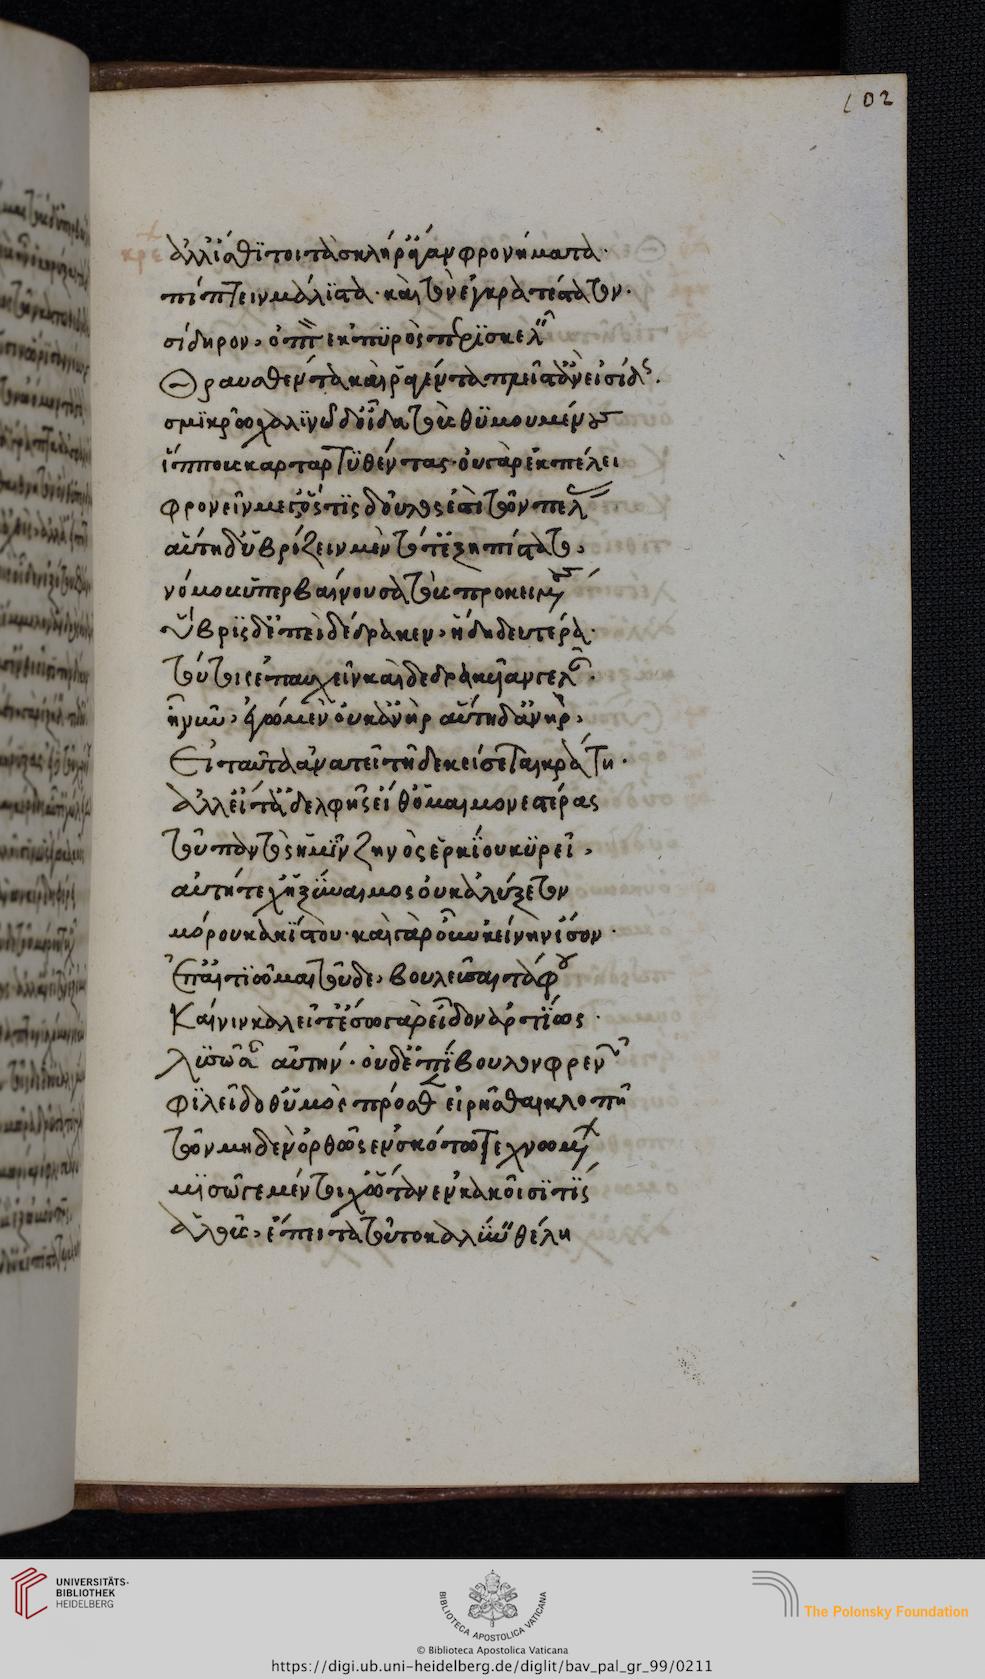 102
κρέ
ἀλλ' ἴσθι τοι τὰ σκλήρ' ἄγαν φρονήματα·
πίπτειν μάλιστα· καὶ τὸν ἐγκρατέστατον·
σίδηρον, ὀπτὸν ἐκ πυρὸς περισκελῆ
Θραυσθέντα καὶ ῥαγέντα πλεῖστ' ἂν εἰσίδοις.
σμικρῷ χαλινῷ δ' οἶδα τοὺς θυμουμένους
ἵππους καταρτυθέντας· οὐ γὰρ ἐκπέλει
φρονεῖν μέγ' ὅστις δοῦλός ἐστι τῶν πέλας
αὕτη δ' ὑβρίζειν μὲν τότ' ἐξηπίστατο,
νόμους ὑπερβαίνουσα τοὺς προκειμένους
ὕβρις δ' ἐπεὶ δέδρακεν, ἥδε δευτέρα·
τούτοις ἐπαυχεῖν καὶ δεδρακυῖαν γελᾶν.
ἦ νῦν, ἐγὼ μὲν οὐκ ἀνὴρ αὕτη δ' ἀνὴρ,
Εἰ ταῦτ' ἀνατεὶ τῇδε κείσεται κράτη.
ἀλλ' εἴτ' ἀδελφῆς εἴθ' ὁμαιμονεστέρας
τοῦ παντὸς ἡμῖν ζηνὸς ἑρκίου κυρεῖ,
αὐτή τε χἠ ξύναιμος οὐκ ἀλύξετον
μόρου κακίστου· καὶ γὰρ οὖν κείνην ἴσον·
Ἐπαιτιῶμαι τοῦδε, βουλεῦσαι τάφου
Καί νιν καλεῖτ' ἔσω γὰρ εἶδον ἀρτίως·
λυσσῶσαν αὐτὴν· οὐδ' ἐπήβολον φρενῶν
φιλεῖ δ' ὁ θυμὸς πρόσθεν εἰρῆσθαι κλοπῇ
τῶν μηδὲν ὀρθῶς ἐν σκότῳ τεχνωμένων
μισῶ γε μέντοι χὤταν ἐν κακοῖσί τις
ἁλοὺς, ἔπειτα τοῦτο καλλύνειν θέλῃ
UNIVERSITÄTS-
BIBLIOTHEK
HEIDELBERG
BIBLIOTECA APOSTOLICA VATICANA
The Polonsky Foundation
© Biblioteca Apostolica Vaticana
https://digi.ub.uni-heidelberg.de/diglit/bav_pal_gr_99/0211